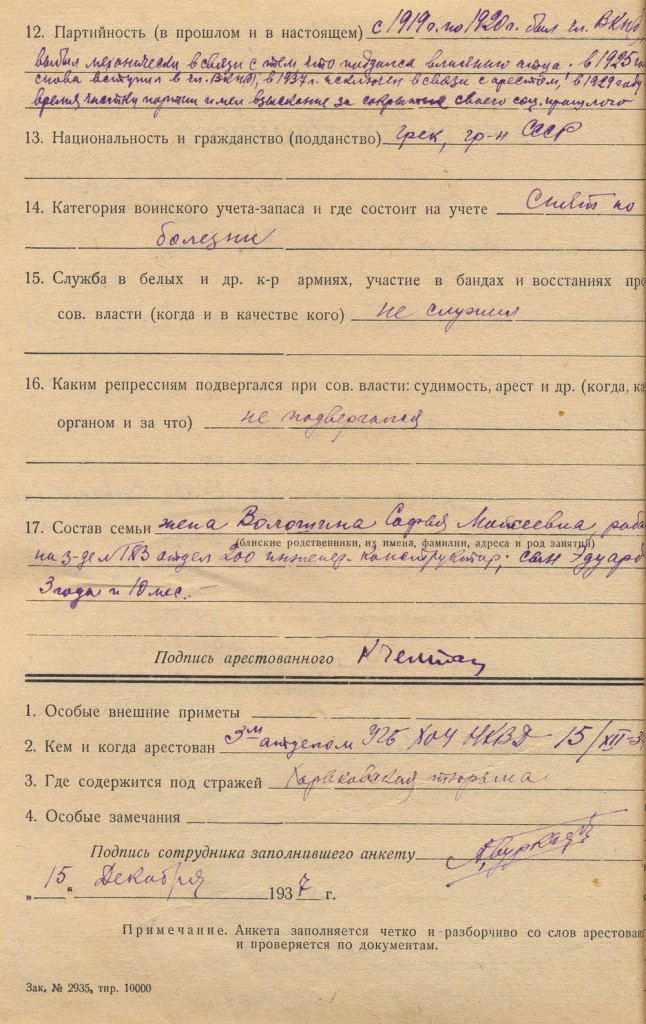 12. Партийность (в прошлом и в настоящем) с 1919 г. по 1920 г. был чл. ВКПб,
выбыл механически в связи с тем что поддался влиянию отца. в 1925 го
снова вступил в чл. ВКПб, в 1937 г. исключен в связи с арестом, в 1929 году
время чистки партии имел взыскание за сокрытие своего соц. прошлого
13. Национальность и гражданство (подданство) грек, гр-н СССР
14. Категория воинского учета-запаса и где состоит на учете Снят по
болезни
15. Служба в белых и др. к-р армиях, участие в бандах и восстаниях про
сов. власти (когда и в качестве кого) не служил
16. Каким репрессиям подвергался при сов. власти: судимость, арест и др. (когда, ка
органом и за что) не подвергался
17. Состав семьи жена Волошина Софья Моисеевна рабо
(блиские родственники, их имена, фамилии, адреса и род занятий)
на з-де отдел 200 инженер-конструктор; сын Эдуард
3 года и 10 мес.-
Подпись арестованного
1. Особые внешние приметы
2. Кем и когда арестован 3м отделом УГБ ХОУ НКВД 15/XII-3
3. Где содержится под стражей Харьковская тюрьма
4. Особые замечания
Подпись сотрудника заполнившего анкету
„15“ Декабря 1937 г.
Примечание. Анкета заполняется четко и разборчиво со слов арестован
и проверяется по документам.
Зак. № 2935, тир. 10000